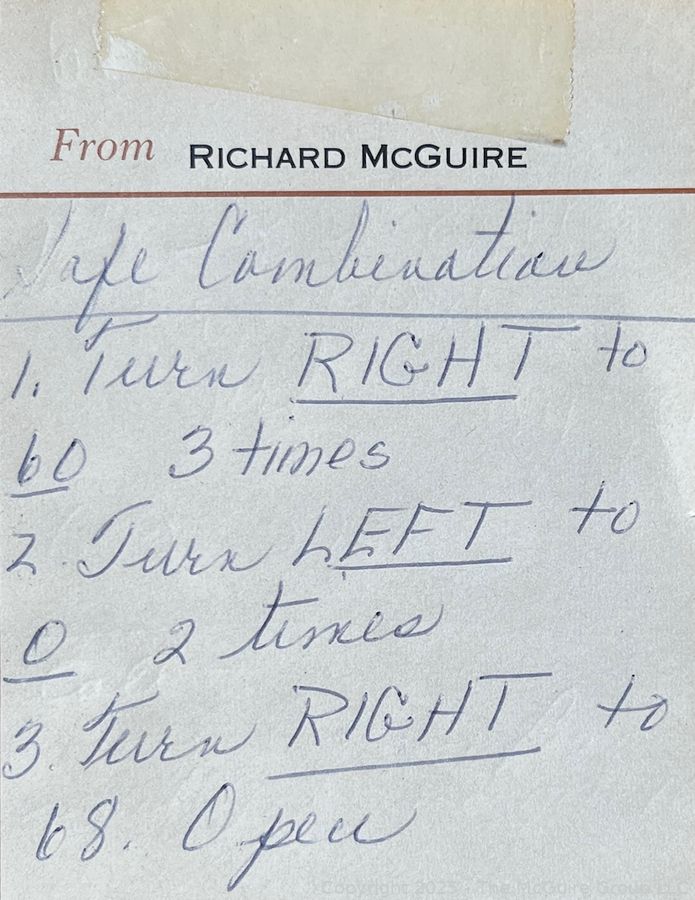 From RICHARD McGUIRE
Safe Combination
1. Turn RIGHT to
60 3 times
2. Turn LEFT to
0 2 times
3. Turn RIGHT to
68. Open
Copyright 2025 - The McGuire Group LLC